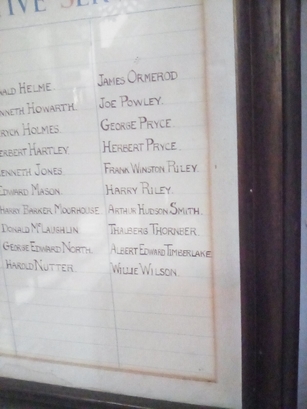 IVE SER
ALD HELME
NNETH HOWARTH.
RYCK HOLMES.
ERBERT HARTLEY
ENNETH JONES.
EDWARD MASON.
HARRY PARKER MOORHOUSE
DONALD MCLAUGHLIN
GEORGE EDWARD NORTH.
HAROLD NUTTER.
JAMES ORMEROD
JOE POWLEY.
GEORGE PRYCE
HERBERT PRYCE
FRANK WINSTON RILEY.
HARRY RILEY.
ARTHUR HUDSON SMITH.
THALBERG THORNBER.
ALBERT EDWARD TIMBERLAKE
WILLIE WILSON.